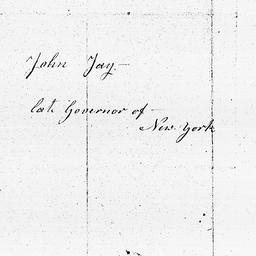 John Jay—
late Governor of—
New York